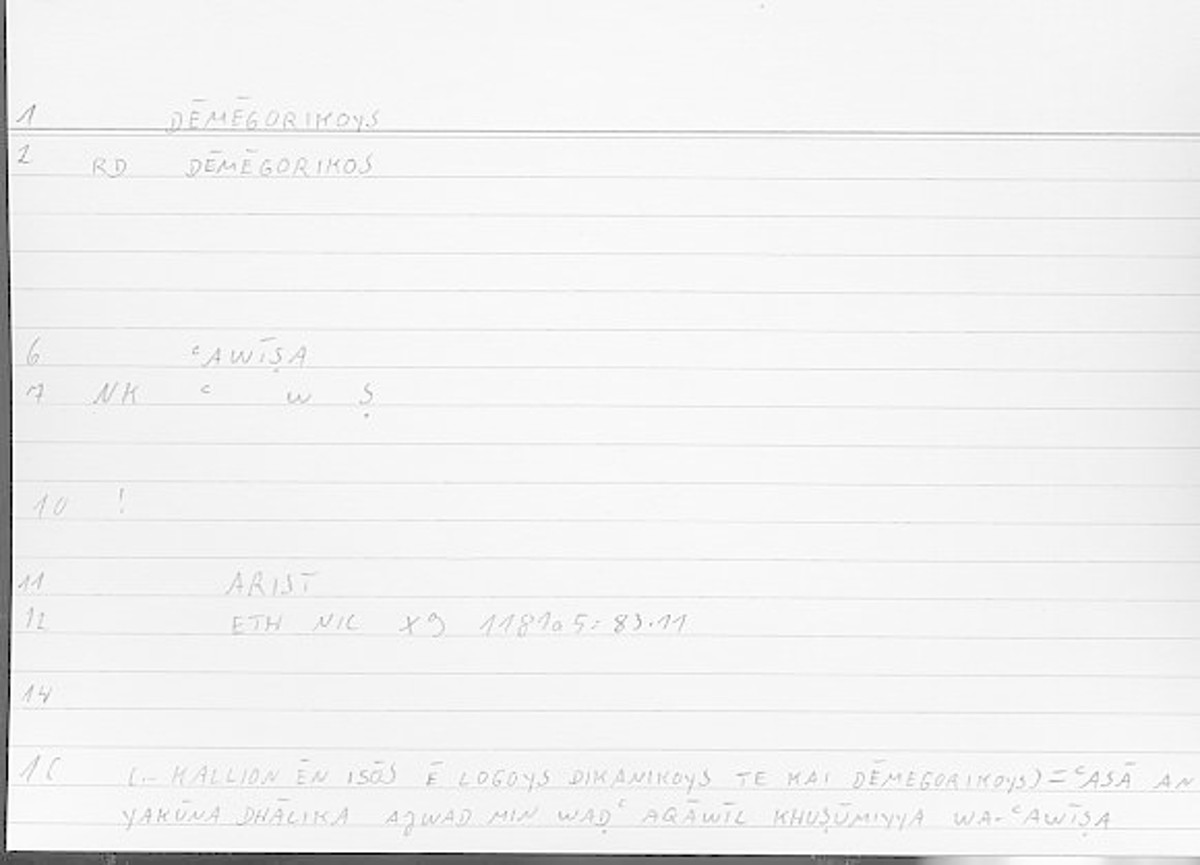 1 DĒMĒGORIKOYS
2 RD DĒMĒGORIKOS
6 ʿAWĪṢA
7 NK ʿ W Ṣ
10 !
11 ARIST
12 ETH NIC X9 1181a5: 83.11
14
15 (.. KALLION ĒN ISŌS Ē LOGOYS DIKANIKOYS TE KAI DĒMEGORIKOYS) = ʿASĀ AN
YAKŪNA DHĀLIKA AǧWAD MIN WAḌʿ AQĀWĪL KHUṢŪMIYYA WA-ʿAWĪṢA